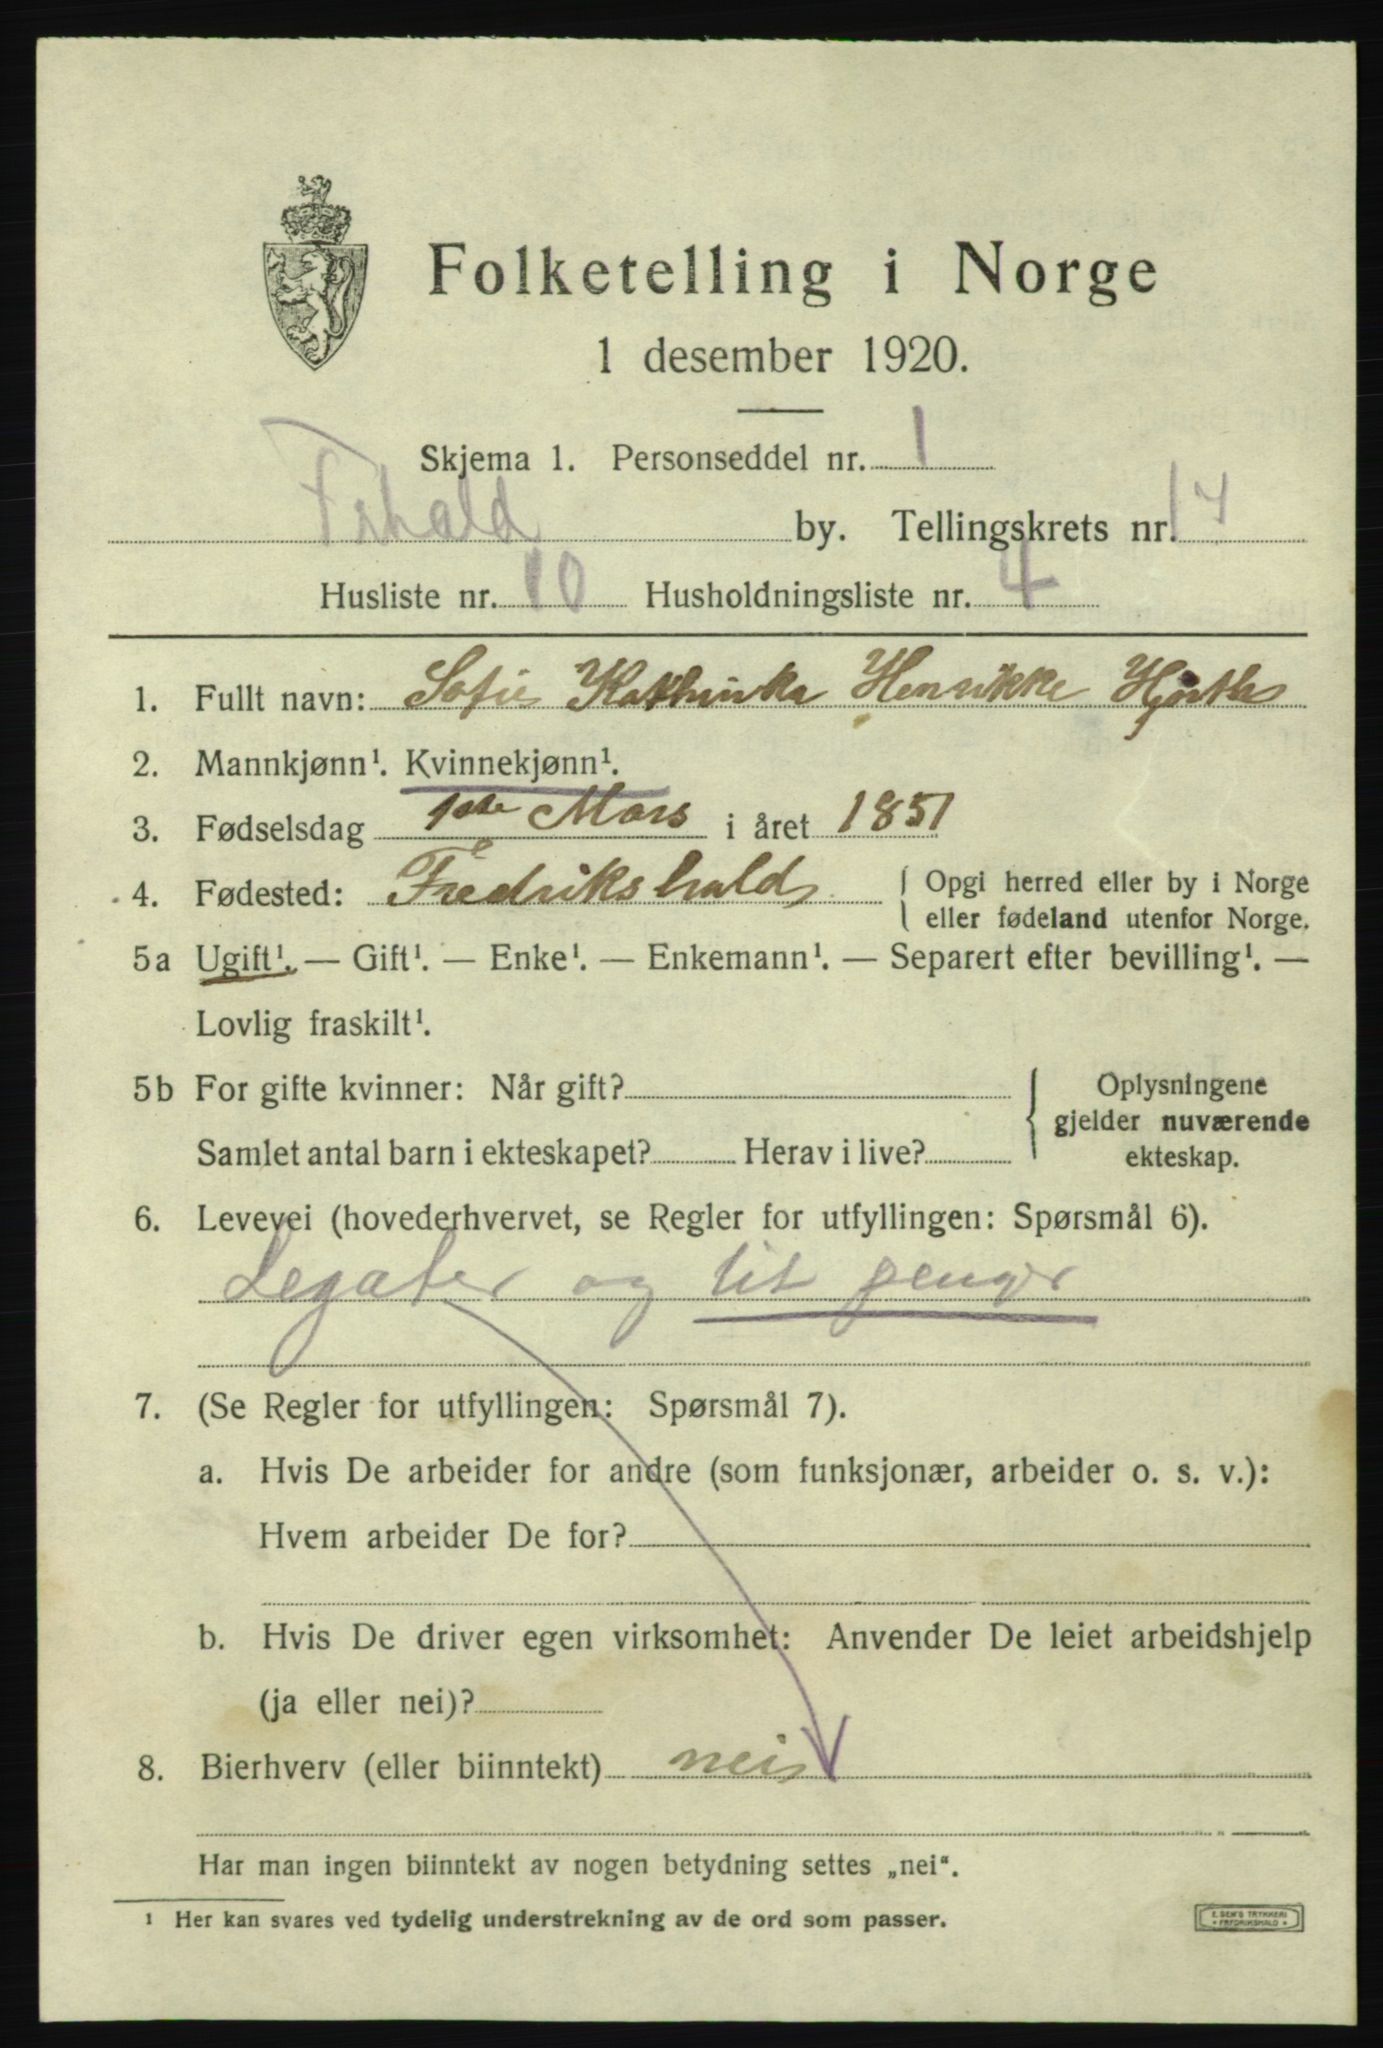 Folketelling i Norge
1 desember 1920.
Skjema 1. Personseddel nr. 1
Frhald by. Tellingskrets nr. 17
Husliste nr. 10 Husholdningsliste nr. 4
1. Fullt navn: Sofie Kathinka Henrikke
2. Mannkjønn¹. Kvinnekjønn¹.
3. Fødselsdag 1ste Mars i året 1851
4. Fødested: Fredrikshald { Opgi herred eller by i Norge
eller fødeland utenfor Norge.
5a Ugift¹. — Gift¹. — Enke¹. — Enkemann¹. — Separert efter bevilling¹. —
Lovlig fraskilt¹.
5b For gifte kvinner: Når gift? { Oplysningene
gjelder nuværende
Samlet antal barn i ekteskapet? Herav i live? ekteskap.
6. Levevei (hovederhvervet, se Regler for utfyllingen: Spørsmål 6).
Legater og lit penger
7. (Se Regler for utfyllingen: Spørsmål 7).
a. Hvis De arbeider for andre (som funksjonær, arbeider o. s. v.):
Hvem arbeider De for?
b. Hvis De driver egen virksomhet: Anvender De leiet arbeidshjelp
(ja eller nei)?
8. Bierhverv (eller biinntekt) nei
Har man ingen biinntekt av nogen betydning settes „nei“.
¹ Her kan svares ved tydelig understrekning av de ord som passer.
E. SEM'S TRYKKERI
• FREDRIKSHALD •